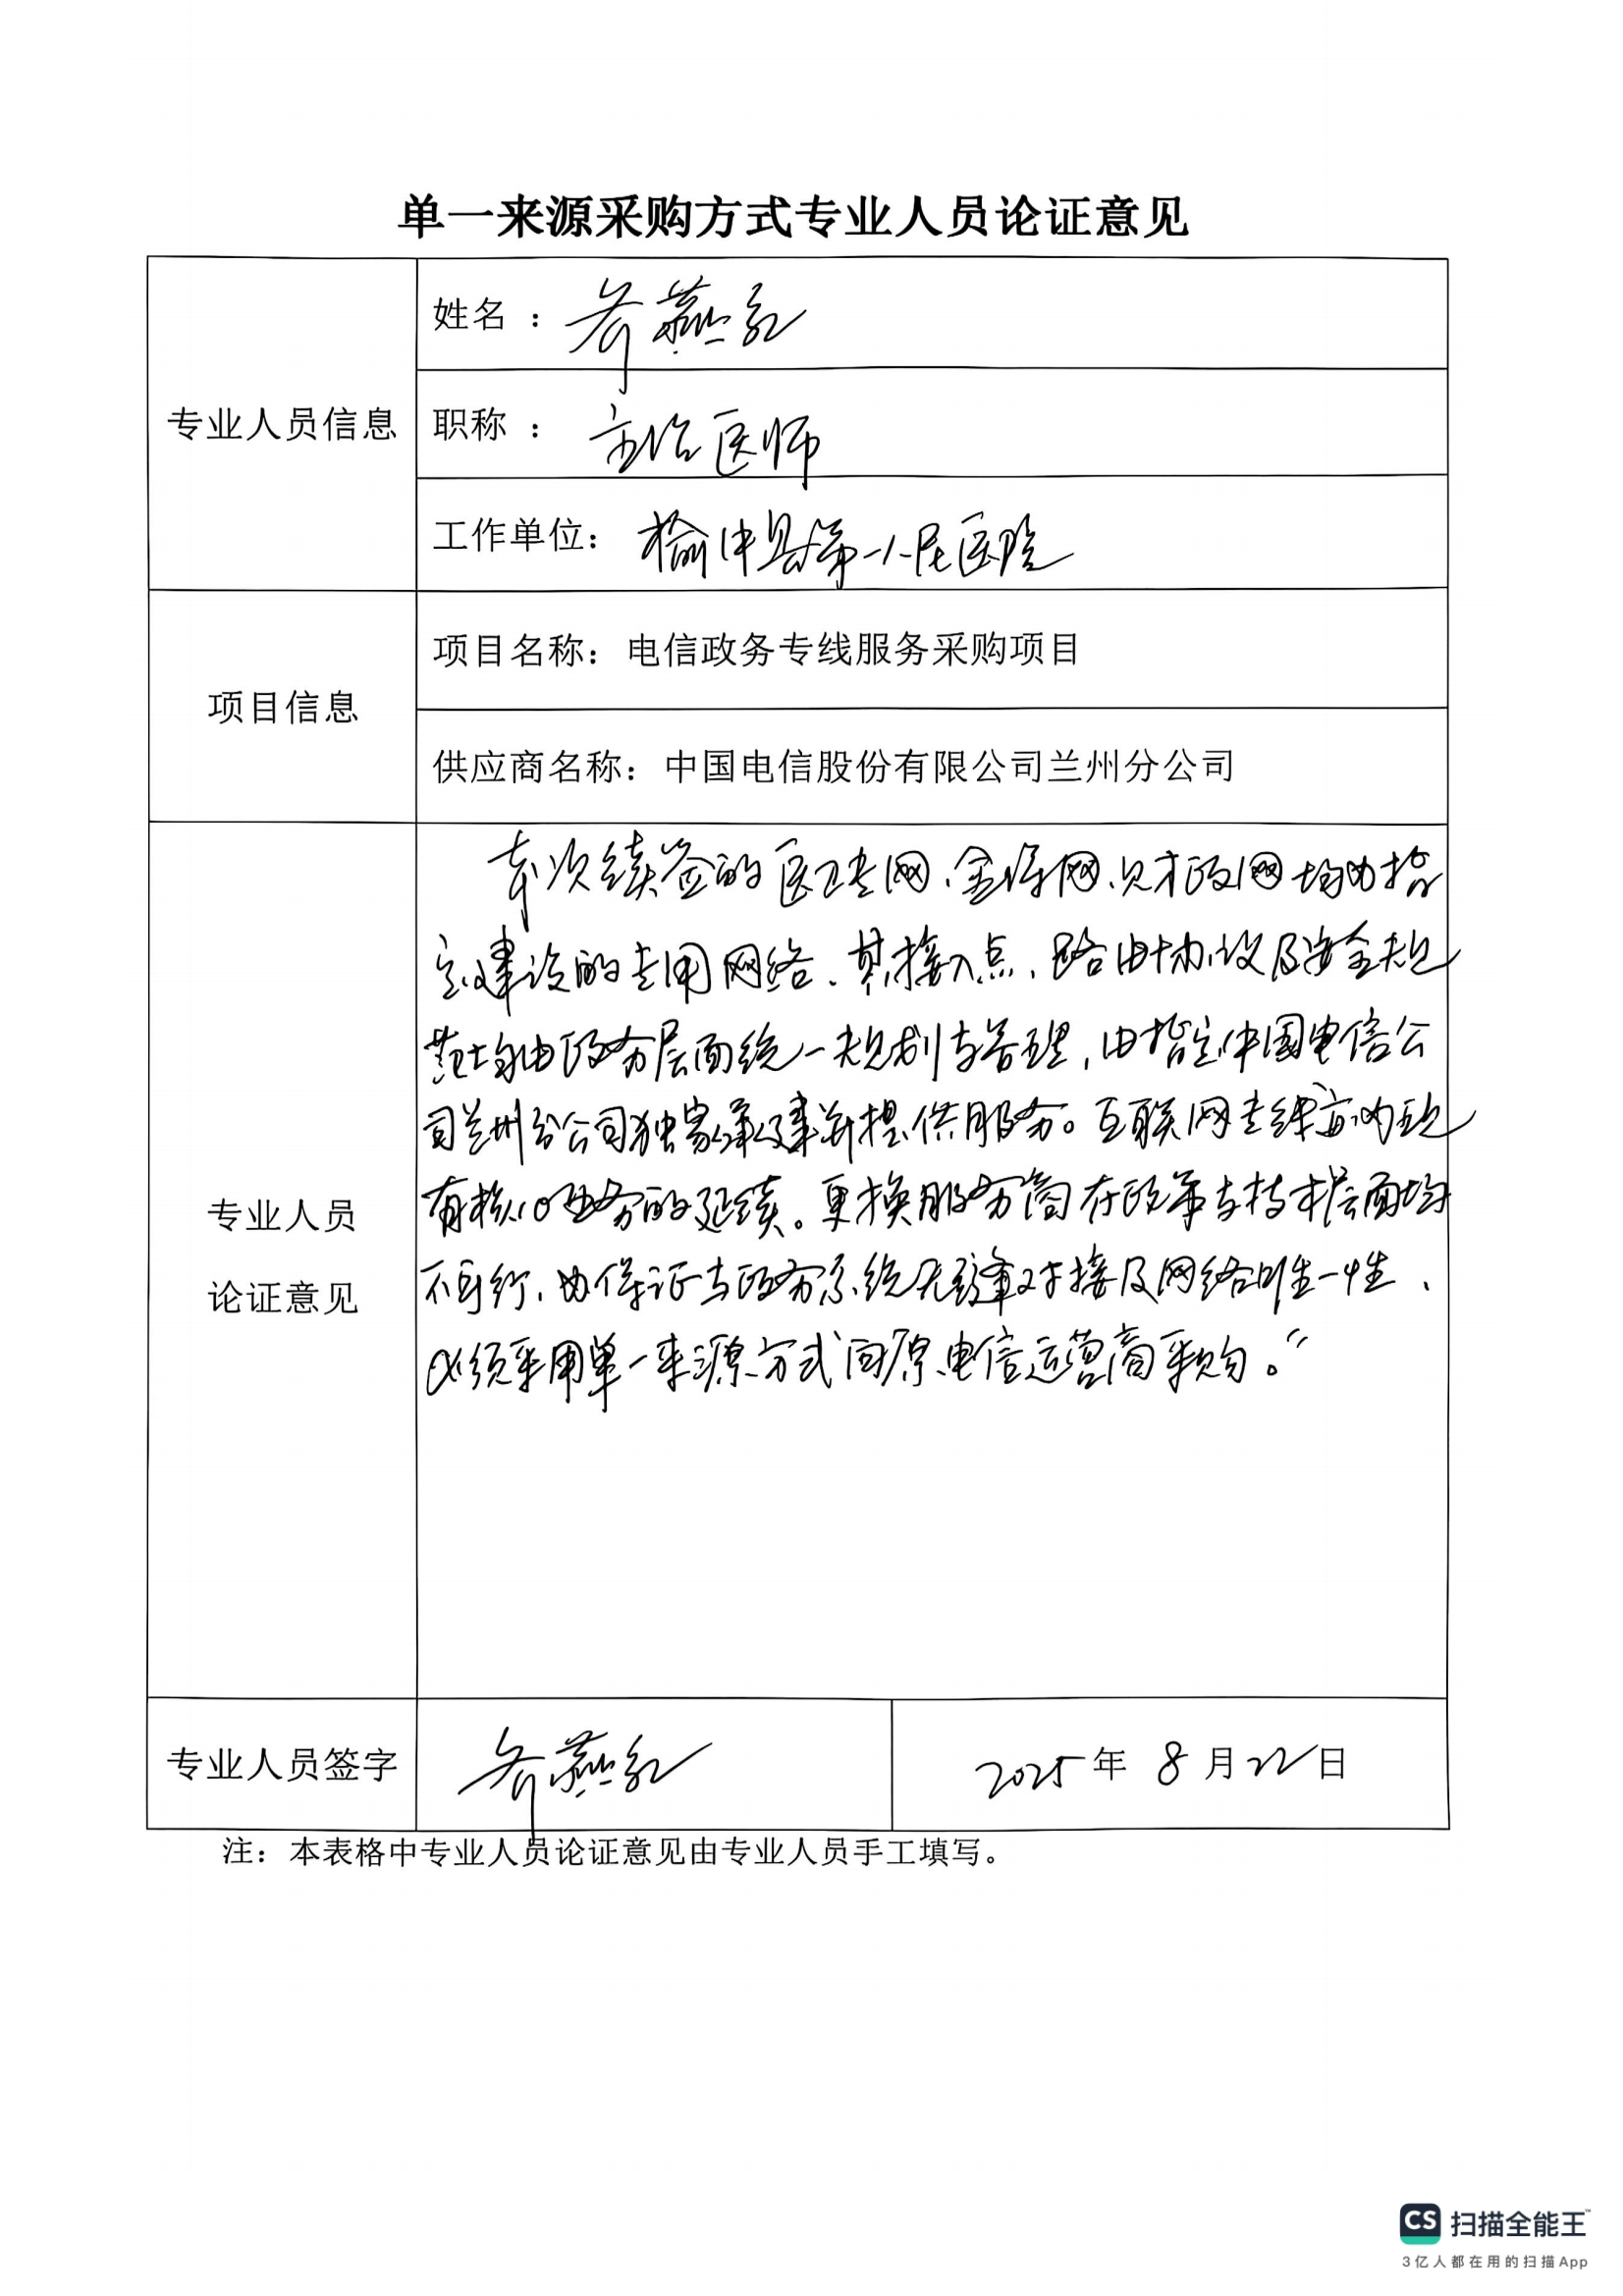 单一来源采购方式专业人员论证意见
专业人员信息
姓名 : 燕红
职称 : 主治医师
工作单位: 榆中县第一人民医院
项目信息
项目名称: 电信政务专线服务采购项目
供应商名称: 中国电信股份有限公司兰州分公司
专业人员
论证意见
本次续签的医卫专网、金保网、财政网均为指
定建设的专用网络、其接入点、路由协议及安全规
范均由政务层面统一规划与管理,由指定中国电信公
司兰州分公司独家承建并提供服务。互联网专线亦为现
有核心业务的延续。更换服务商在政策与技术层面均
不可行,为保证与政务系统无缝对接及网络唯一性、
必须采用单一来源方式向原电信运营商采购。”
专业人员签字
燕红
2025年 8月22日
注: 本表格中专业人员论证意见由专业人员手工填写。
CS 扫描全能王™
3亿人都在用的扫描App